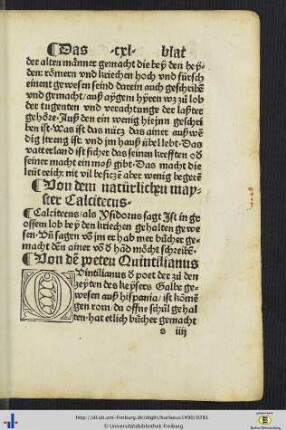 ¶Das ·cxl· blat
der alten männer gemacht die bey den hey-
den: römern vnd kriechen hoch vnd fürsch
einent gewesen seind darein auch geschribē
vnd gemacht/ auß aygem hyren wz zů lob
der tugenten vnd verachtunge der laster
gehöre. Auß den ein wenig hiejnn geschri
ben ist. Was ist das nücz das ainer außwē
dig streng ist vnd jm hauß übel lebt. Das
vatterland ist sicher das seinen krefften oß
seiner macht ein moß gibt. Das macht die
leüt reich: nit vil beficzē aber wenig begerē
¶Von dem natürlichen may-
ster Calcitecus.
¶Calcitecus/ als Ysidorus sagt Ist in gro
ossem lob bey den kriechen gehalten gewe
sen. Vñ sagen vō jm er hab mer bücher ge-
macht deñ ainer vō ð hād möcht schreibē.
¶Von dē poeten Quintilianus
Quintilianus ð poet der zů den
zeyten des keysers Galbe ge-
wesen auß hispania/ ist kömē
gen rom/ da offne schůl gehal
ten. hat etlich bücher gemacht
s iiij
http://dl.ub.uni-freiburg.de/diglit/burlaeus1490/0281
© Universitätsbibliothek Freiburg